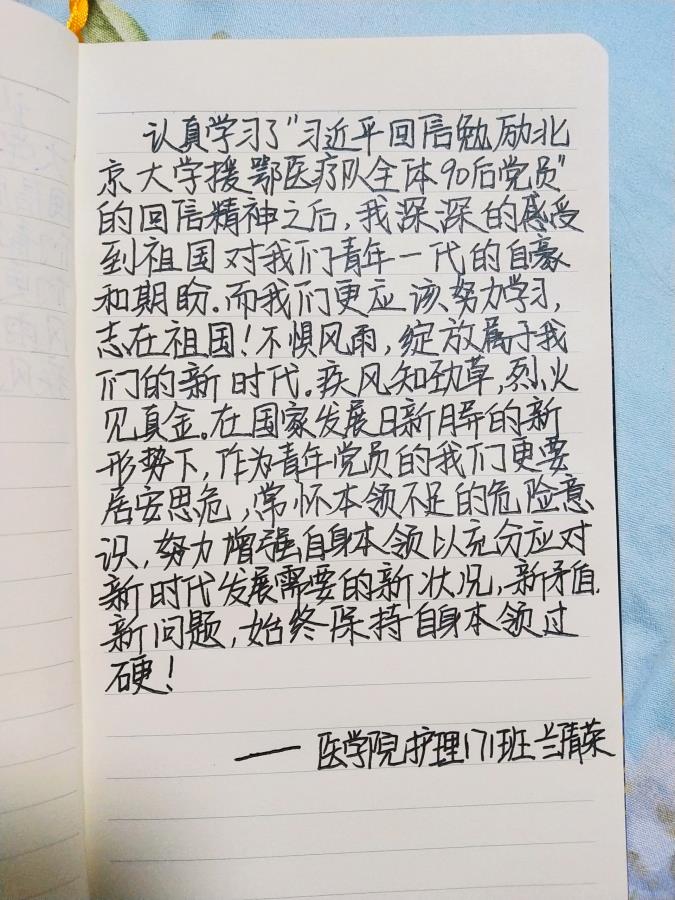 认真学习了"习近平回信勉励北
京大学援鄂医疗队全体90后党员"
的回信精神之后,我深深的感受
到祖国对我们青年一代的自豪
和期盼.而我们更应该努力学习,
志在祖国!不惧风雨,绽放属于我
们的新时代.疾风知劲草,烈火
见真金。在国家发展日新月异的新
形势下,作为青年党员的我们更要
居安思危,常怀本领不足的危险意
识,努力增强自身本领以充分应对
新时代发展需要的新状况,新矛盾.
新问题,始终保持自身本领过
硬!
——医学院护理171班兰清荣